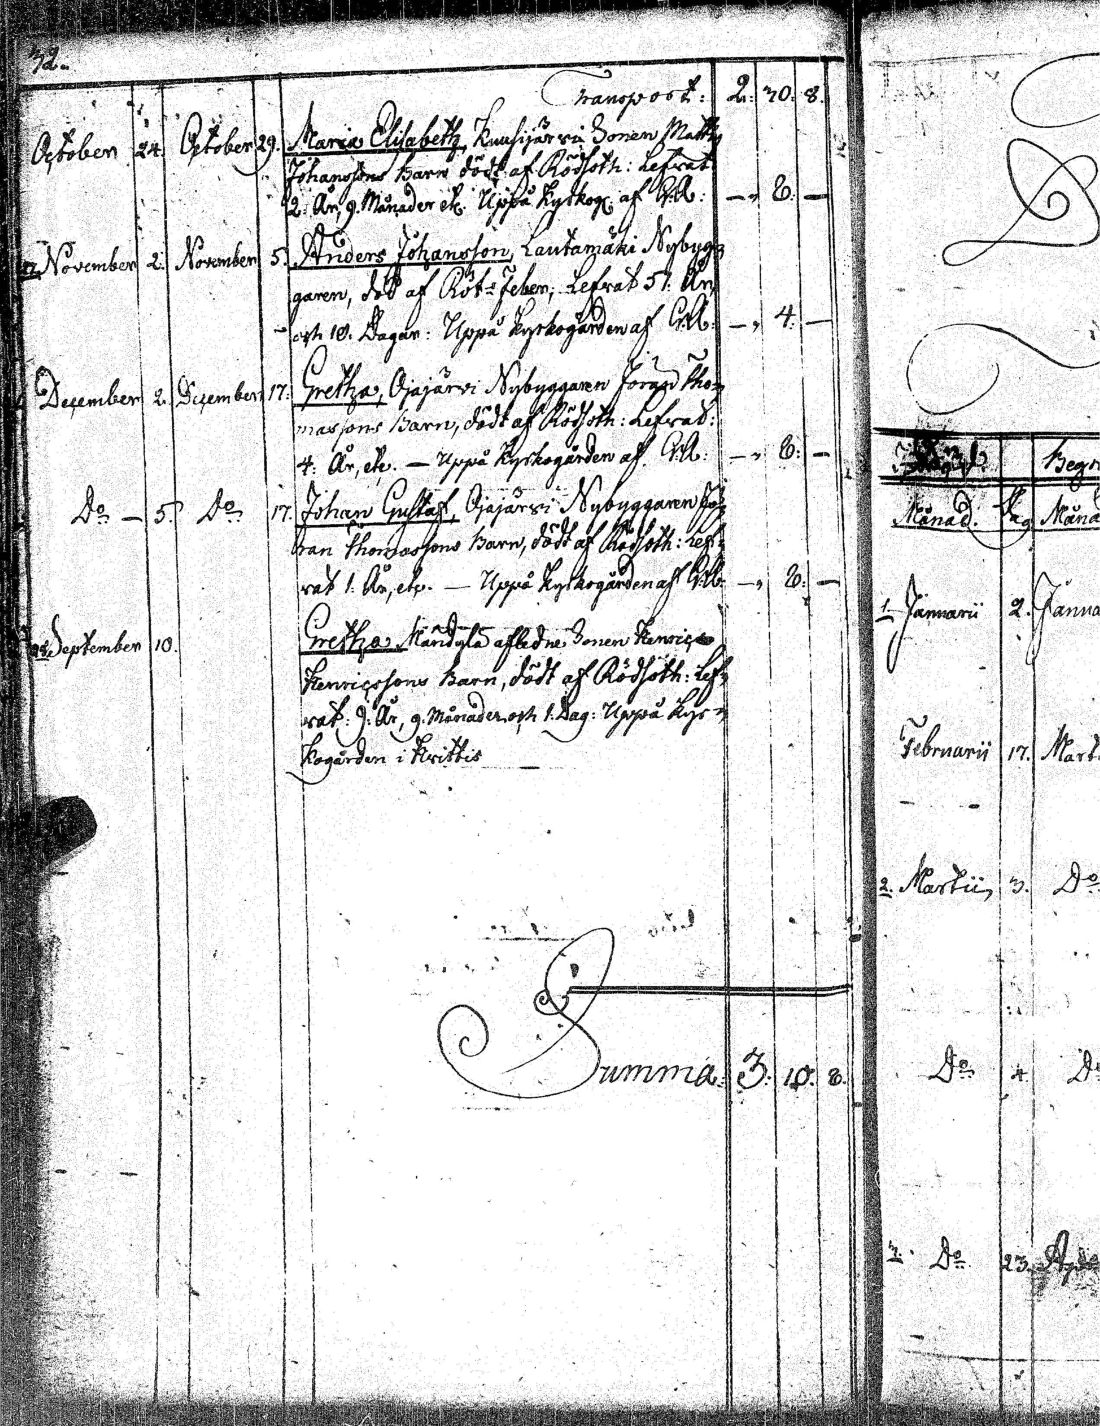 32.
Transport: 2. 30. 8.
October 24. October 29. Maria Elisabeth, Kuusijärvi Bonen Matts
Johanssons Barn dödt af Rödsoth: Lefvat
2: År, 9. Månader etc. Uppå Kyrkog. af
Anders Johansson, Lautamäki Nybyg=
November 2. November 5.
garen, död af Röt=Feber, Lefvat 51. År,
och 18. Dagar: Uppå Kyrkogården af — „ 4. —
December 2. December 17. Gretha, Ojajärvi Nybyggaren Jöran Tho=
massons Barn, dödt af Rödsoth: Lefvat:
4. År, etc. — Uppå Kyrkogården af — „ 8. —
Do — 5. Do 17. Johan Gustaf, Ojajärvi Nybyggaren Jö=
ran Thomassons Barn, dödt af Rödsoth: Lef=
vat 1. År, etc. — Uppå Kyrkogården af — „ 8. —
September 10. Gretha Mändylä afledne Bonen Henrics
Henricssons Barn, dödt af Rödsoth: Lef=
vat: 9. År, 9. Månader och 1. Dag: Uppå Kyr=
kogården i
Summa: 3. 10. 8.
Månad. Dag Måna
1. Januarii 2. Janua
Februarii 17. Mart
2. Martii, 3. Do
Do 4 Do
3. Do 23.